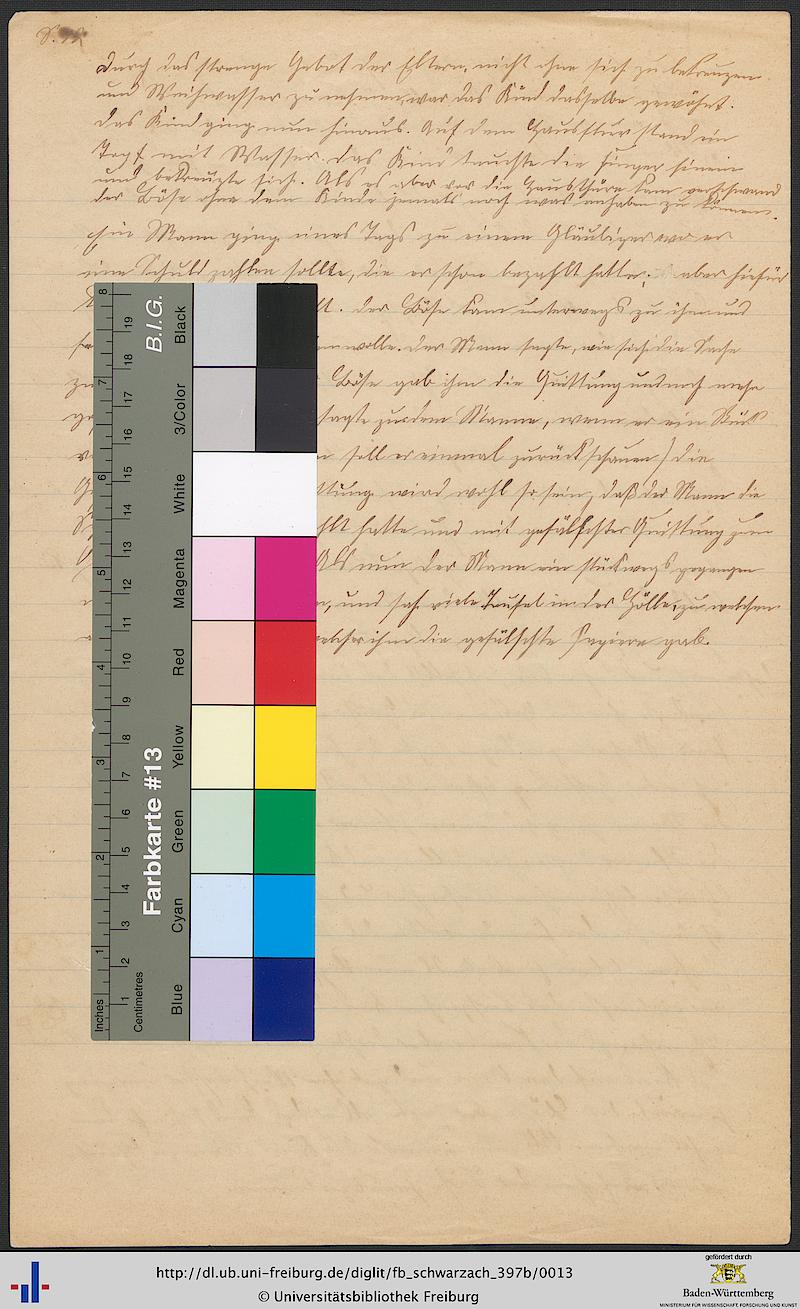 S. 12
Durch das strenge Gebot der Eltern, nicht ohne sich zu bekreuzen
und Weihwasser zu nehmen, war das Kind dasselbe gewöhnt.
das Kind ging nun hinaus. Auf dem Hausflur stand ein
Topf mit Wasser. das Kind tauchte die Finger hinein
und bekreuzte sich. Als es aber vor die Hausthüre kam verschwand
der Böse ohne dem Kinde jemals noch was anhaben zu können.
Ein Mann ging eines Tags zu einem Gläubiger wo er
eine Schuld zahlen sollte, die er schon bezahlt hatte; aber hiefür
der Böse kam unterwegs zu ihm und
wolle. Der Mann sagte, wie sich die Sache
zu Böse gab ihm die Quittung und noch mehr
sagte zu dem Manne, wenn er ein Stück
soll er einmal zurückschauen) die
wird wohl so sein, daß der Mann die
hatte und mit gefälschter Quittung zum
Als nun der Mann ein stückwegs gegangen
und sah viele Teufel in der Hölle, zu welchen
welcher ihm die gefälschte Papiere gab.
Inches
Centimetres
1 2 3 4 5 6 7 8
1 2 3 4 5 6 7 8 9 10 11 12 13 14 15 16 17 18 19
Farbkarte #13
B.I.G.
Blue
Cyan
Green
Yellow
Red
Magenta
White
3/Color
Black
http://dl.ub.uni-freiburg.de/diglit/fb_schwarzach_397b/0013
© Universitätsbibliothek Freiburg
gefördert durch
Baden-Württemberg
MINISTERIUM FÜR WISSENSCHAFT, FORSCHUNG UND KUNST